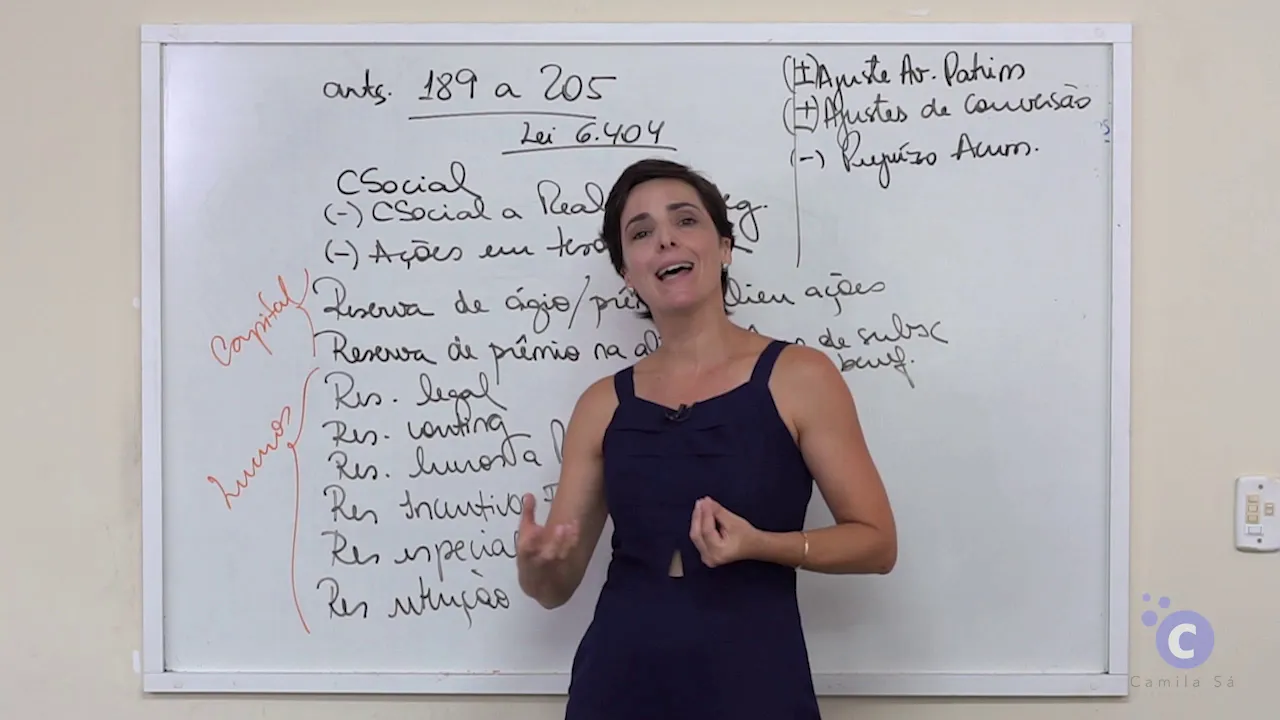 arts. 189 a 205
Lei 6.404
CSocial
(-) CSocial a Real eg.
(-) Ações em teso
Reserva de ágio/prê lien ações
Reserva de prêmio na ali de subsc
benef.
Res. legal
Res. conting
Res. lucros a
Res Incentivo
Res especial
Res retenção
Capital
Lucros
(±) Ajuste Av. Patrim
(±) Ajustes de conversão
(-) Prejuízo Acum.
C
Camila Sá